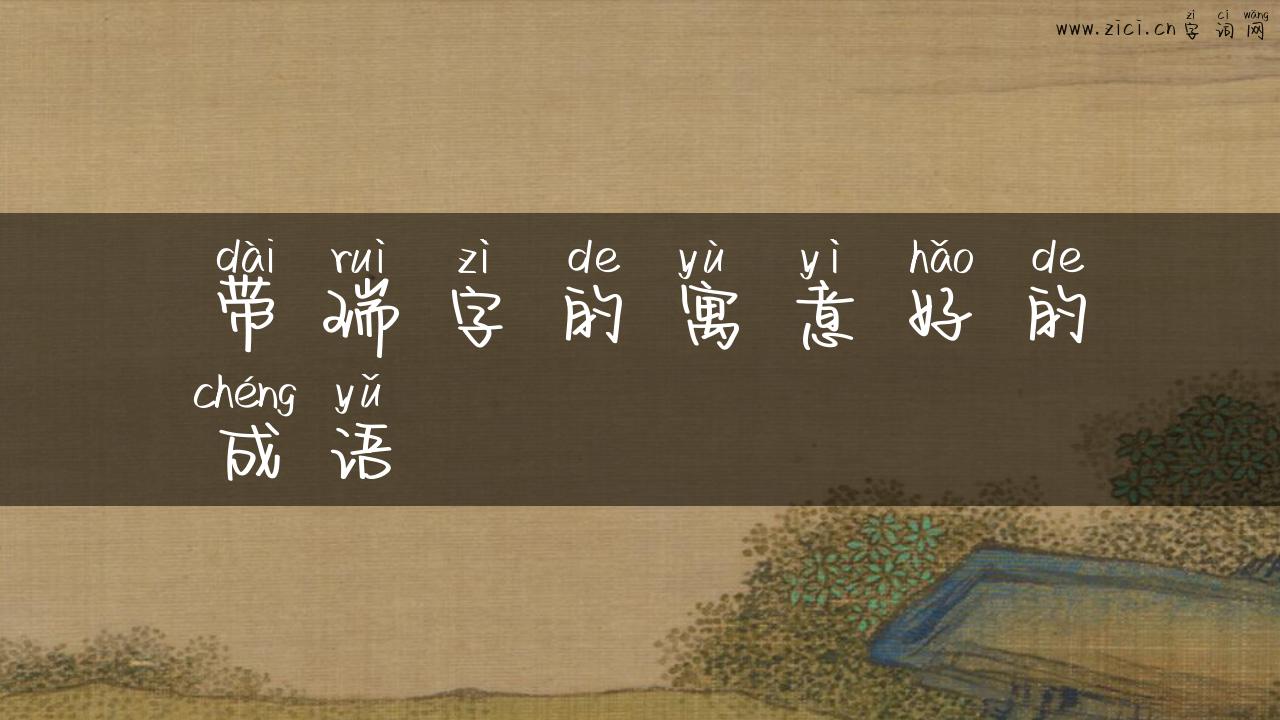 zì cí wǎng
www.zici.cn 字 词 网
dài ruì zì de yù yì hǎo de
带 瑞 字 的 寓 意 好 的
chéng yǔ
成 语